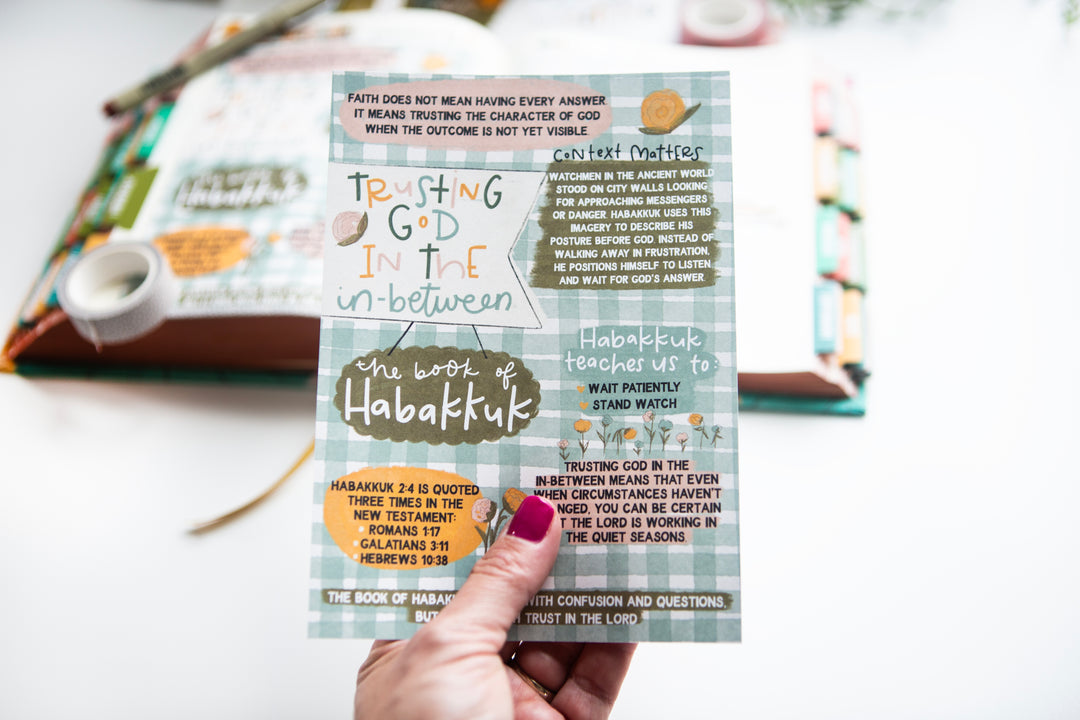 FAITH DOES NOT MEAN HAVING EVERY ANSWER.
IT MEANS TRUSTING THE CHARACTER OF GOD
WHEN THE OUTCOME IS NOT YET VISIBLE.
TRUSTING
GOD
IN THE
in-between
context matters
WATCHMEN IN THE ANCIENT WORLD
STOOD ON CITY WALLS LOOKING
FOR APPROACHING MESSENGERS
OR DANGER. HABAKKUK USES THIS
IMAGERY TO DESCRIBE HIS
POSTURE BEFORE GOD. INSTEAD OF
WALKING AWAY IN FRUSTRATION,
HE POSITIONS HIMSELF TO LISTEN
AND WAIT FOR GOD'S ANSWER.
the book of
Habakkuk
Habakkuk
teaches us to:
WAIT PATIENTLY
STAND WATCH
HABAKKUK 2:4 IS QUOTED
THREE TIMES IN THE
NEW TESTAMENT:
ROMANS 1:17
GALATIANS 3:11
HEBREWS 10:38
TRUSTING GOD IN THE
IN-BETWEEN MEANS THAT EVEN
WHEN CIRCUMSTANCES HAVEN'T
NGED, YOU CAN BE CERTAIN
T THE LORD IS WORKING IN
THE QUIET SEASONS.
THE BOOK OF HABAK WITH CONFUSION AND QUESTIONS,
BUT TRUST IN THE LORD